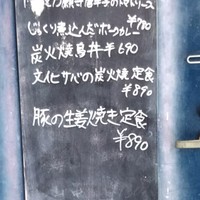 じっくり煮込んだポークカレー ¥790
炭火焼鳥丼 ¥690
文化サバの炭火焼定食
¥890
豚の生姜焼き定食
¥890